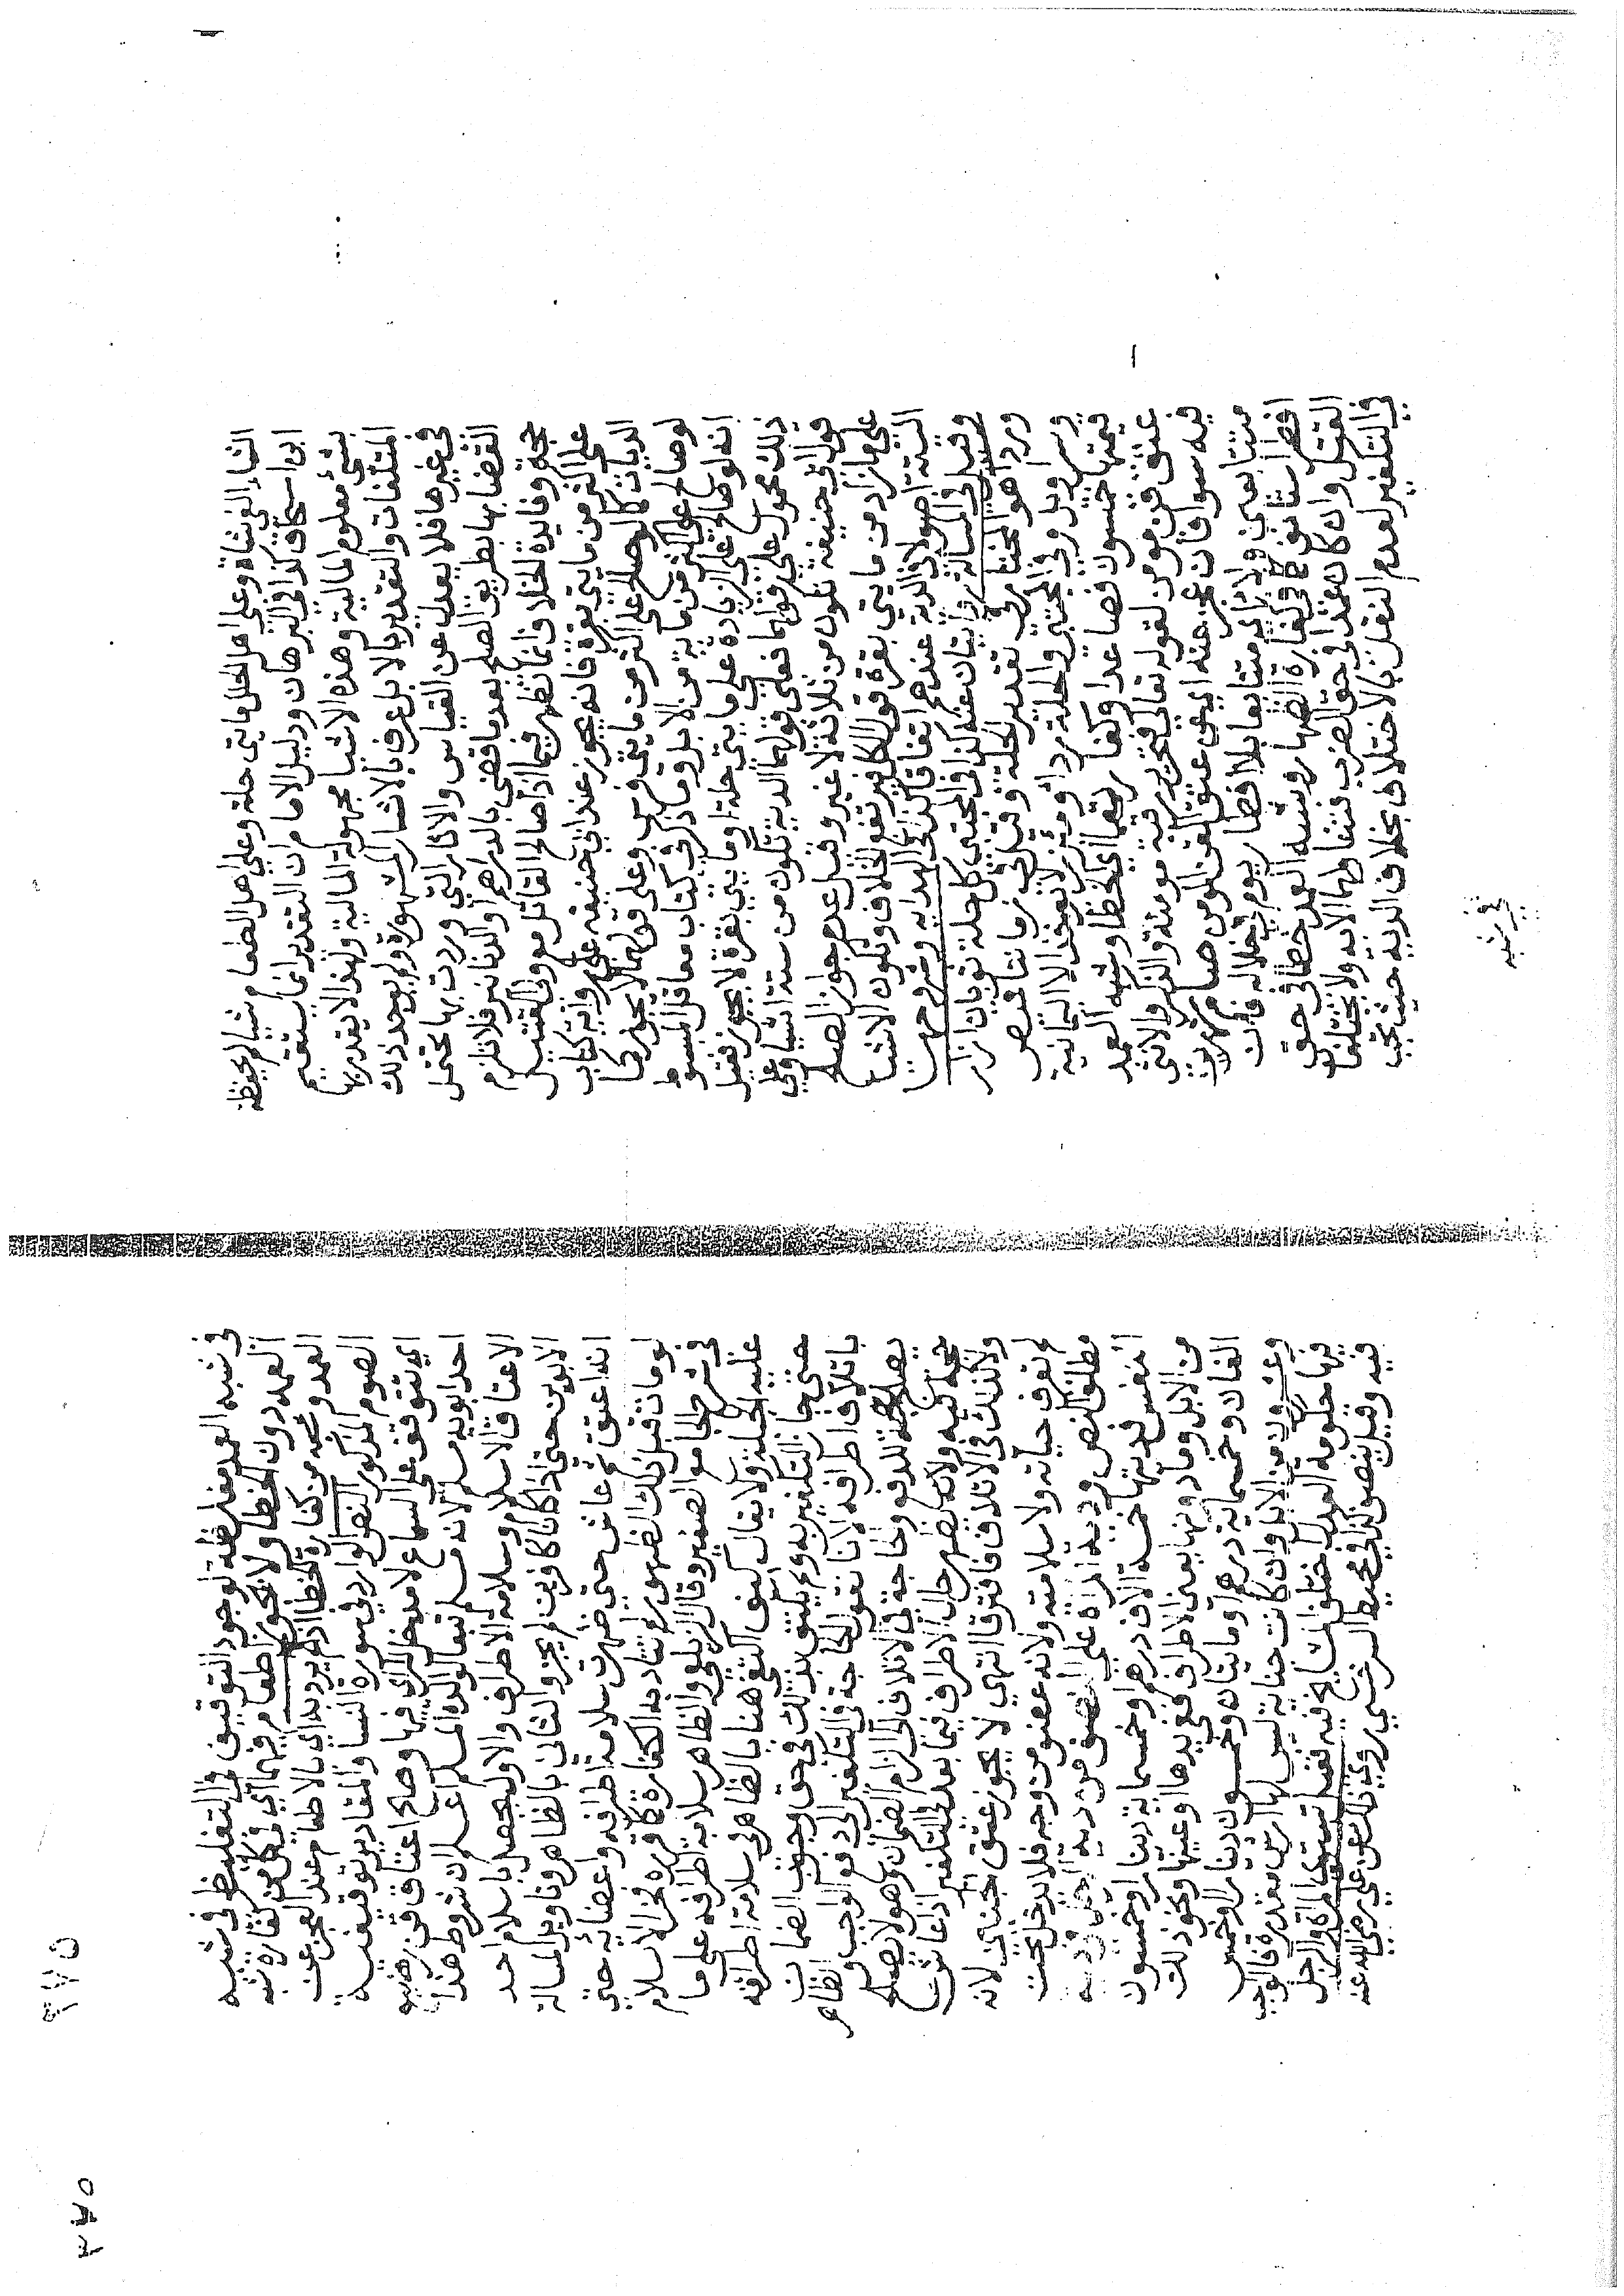 الشاء الفي شاة وعلى اهل الحلل مايتى حلة وعلى اهل الطعام شيا لم يحفظه
ابن اسحاق كذا في البرهان ودليل الامام ان التقدير انما يستقيم
بشئ معلوم المالية وهذه الاشيا مجهولة المالية ولهذا لا يقدر بها
المتلفات والتقدير بالابل عرف بالاثار المشهورة ولم يوجد ذلك
في غيرها فلا يعدل عن القياس والاثار التي وردت بها تحتمل
القضا بها بطريق الصلح بعد ما قضى بالدراهم والدنانير فلا تلزم
حجة وفايدة الخلاف انما تظهر فيما اذا صالح القاتل مع ولي القتيل
على اكثر من مايتى بقرة فانه يجوز عند ابي حنيفة على رواية كتاب
الديات كالصلح على اكثر من مايتى فرس وعلى قولهما لا يجوز كما
لو صالح على اكثر من ماية من الابل وما ذكر في كتاب معاقل المبسوط
انه لو صالح على الزيادة على مايتى حلة او مايتى بقرة لا يجوز فقيل
ذلك محمول على قولهما فعلى قولهما الدية تكون من ستة اشيا وعلى
قول ابي حنيفة تكون من ثلاثة لا غير وقيل عدم جواز الصلح
على ما زاد من مايتى بقرة قول الكل فيرتفع الخلاف وتكون الاشيا
الستة اصولا في الدية عندهم اتفاقا كذا في الهداية وشروحها
وقيل في المسالة روايتان عنه كذا في المجتبى كل حلة ثوبان ازار
وردا هو المختار في تقدير الحلة وقيل في زماننا قميص
وسراويل وفي المجتبى والحلة ردا ومئزر لا تؤخذ الا اليمانية
قيمتها خمسون فصاعدا وكفارتهما اي الخطا وشبه العمد
عتق قن مومن لقوله تعالى فتحرير رقبة مومنة والذكر والانثى
فيه سوا فان عجز عنه اي عن عتق القن المومن صام شهرين
متتابعين ولاء اي متتابعا بلا افطار يوم في خلاله فان
افطر استانف كما في كفارة الظهار وشبه العمد خطا في حق
القتل وان كان عمدا في حق الضرب فتناولهما الاية ولا يختلفان
في التكفير لعدم النقل بالاختلاف بخلاف الدية حيث تجب
في شبه العمد مغلظة لوجود التوقيف في التغليظ في شبه
العمد دون الخطا ولا يجوز اطعام فيهما اي في كل من كفارة شبه
العمد وشبه من كفارة الخطا اذ لم يرد بدا اي بالاطعام عند العجز عن
الصوم المذكور النص الوارد في سورة النسا والمقادير توقيفية
اي تتوقف على السماع لا مدخل للراي فيها وصح اعتاق قن رضيع
احد ابويه مسلم لانه مسلم تبعا لوالده المسلم اعلم ان شروط هذا
الاعتاق الاسلام وسلامة الاطراف والاول يحصل باسلام احد
الابوين حتى اذا كانا كافرين لم يجز والثاني بالظاهر وتاويل المسالة
انه اعتق ثم عاش حتى ظهرت سلامة اطرافه واعضايه حتى
لو مات قبل ذلك الظهور لم تتاد به الكفارة ذكره فخر الاسلام
في شرح الجامع الصغير وقال الزيلعي والظاهر سلامة اطرافه على ما
عليه الجبلة ولا يقال كيف اكتفى هنا بالظاهر في سلامة اطرافه
حتى جاز التكفير به ولم يكتف بذلك في حق وجوب الضمان
باتلاف اطرافه لانا نقول الحاجة في التكفير الى دفع الواجب والظاهر
يصلح حجة للدفع والحاجة في الاتلاف الى الزام الضمان وهو لا يصلح
حجة فيه ولانه يظهر حال الاطراف فيما بعد التكفير اذا عاش
ولا كذلك في الاتلاف فافترقا انتهى لا يجوز عتق الجنين لانه
لم تعرف حياته ولا سلامته ولانه عضو من وجه فلا يدخل تحت
مطلق النص ودية المراة على النصف من دية الرجل ودية
النفس فديتها خمسة الاف درهم او خمسماية دينار او خمسون
من الابل وما دونها يعني الاطراف ففي يدها او عينها ونحو ذلك
الفان وخمسماية درهم او مايتان وخمسون دينارا وخمس
وعشرون من الابل وان كانت جناية ليس لها ارش مقدرة فالواجب
فيها حكومة العدل اختلف المشايخ فيه فقيل تستوي المراة والرجل
فيه وقيل ينصف كذا في محيط السرخسي روي ذلك عن علي رضي الله عنه
٣٨٥